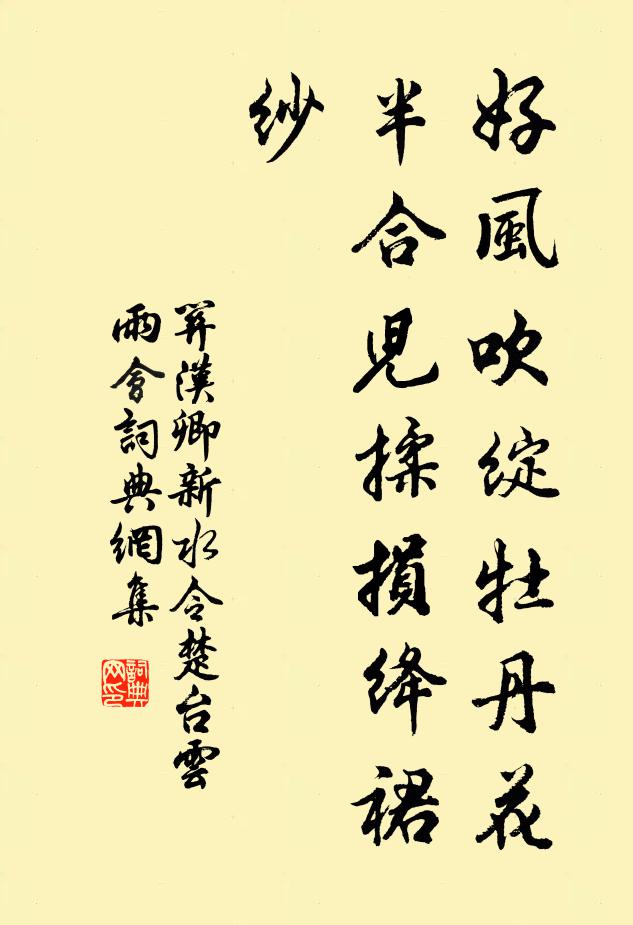 好風吹綻牡丹花
半合兒揉損絳裙
紗
關漢卿新水令楚台雲
雨會詞典網集
詞典網印